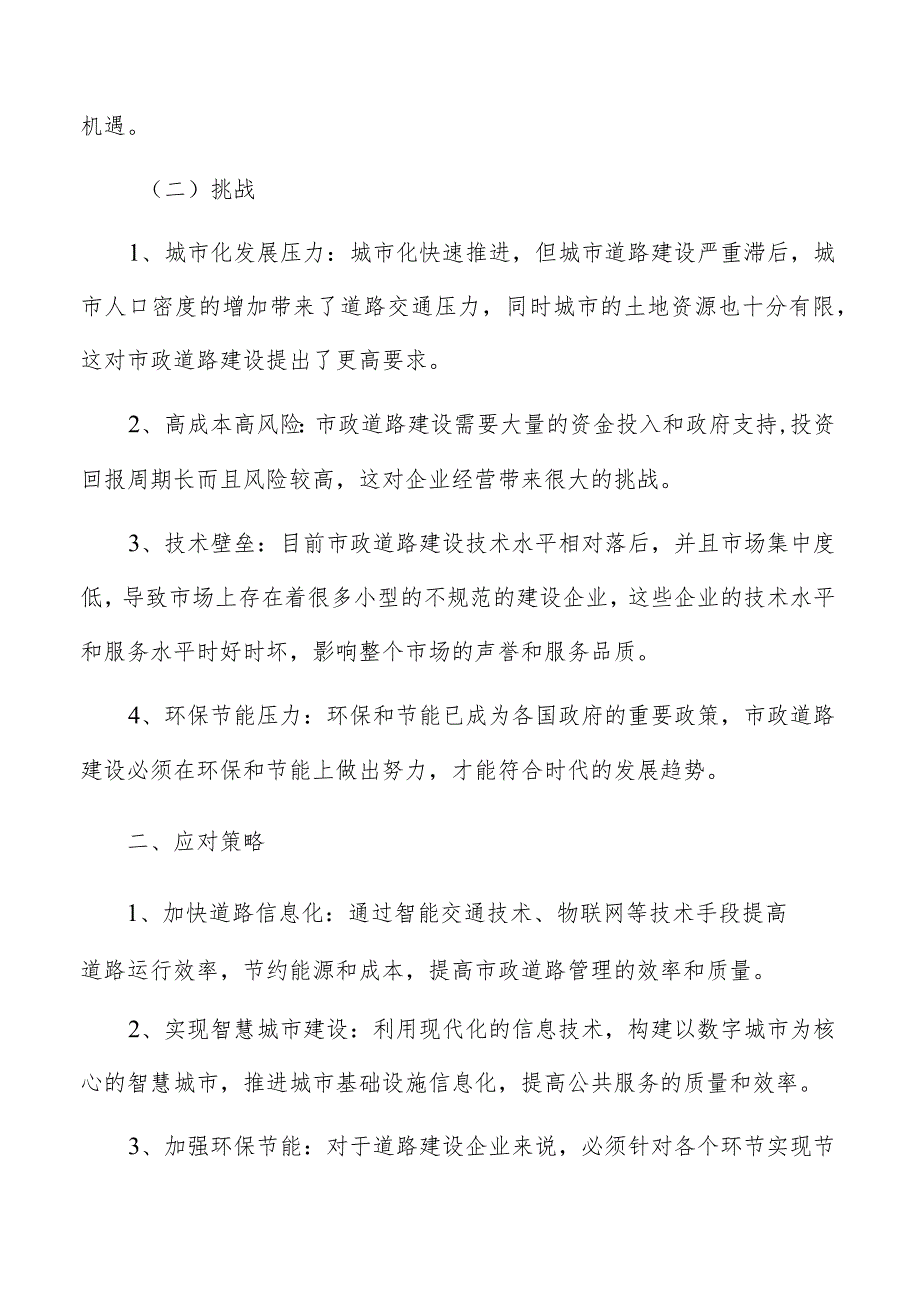 机遇。
（二）挑战
1、城市化发展压力：城市化快速推进，但城市道路建设严重滞后，城
市人口密度的增加带来了道路交通压力，同时城市的土地资源也十分有限，
这对市政道路建设提出了更高要求。
2、高成本高风险：市政道路建设需要大量的资金投入和政府支持,投资
回报周期长而且风险较高，这对企业经营带来很大的挑战。
3、技术壁垒：目前市政道路建设技术水平相对落后，并且市场集中度
低，导致市场上存在着很多小型的不规范的建设企业，这些企业的技术水平
和服务水平时好时坏，影响整个市场的声誉和服务品质。
4、环保节能压力：环保和节能已成为各国政府的重要政策，市政道路
建设必须在环保和节能上做出努力，才能符合时代的发展趋势。
二、应对策略
1、加快道路信息化：通过智能交通技术、物联网等技术手段提高
道路运行效率，节约能源和成本，提高市政道路管理的效率和质量。
2、实现智慧城市建设：利用现代化的信息技术，构建以数字城市为核
心的智慧城市，推进城市基础设施信息化，提高公共服务的质量和效率。
3、加强环保节能：对于道路建设企业来说，必须针对各个环节实现节